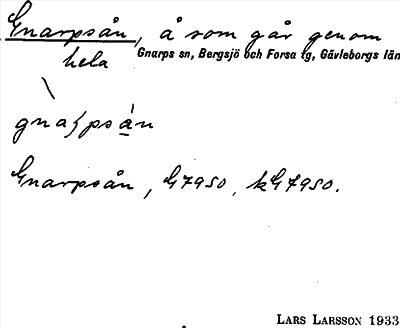 Gnarpsån, å som går genom
hela Gnarps sn, Bergsjö och Forsa tg, Gävleborgs län
Gnarpsån, G7950, kG7950.
LARS LARSSON 1933